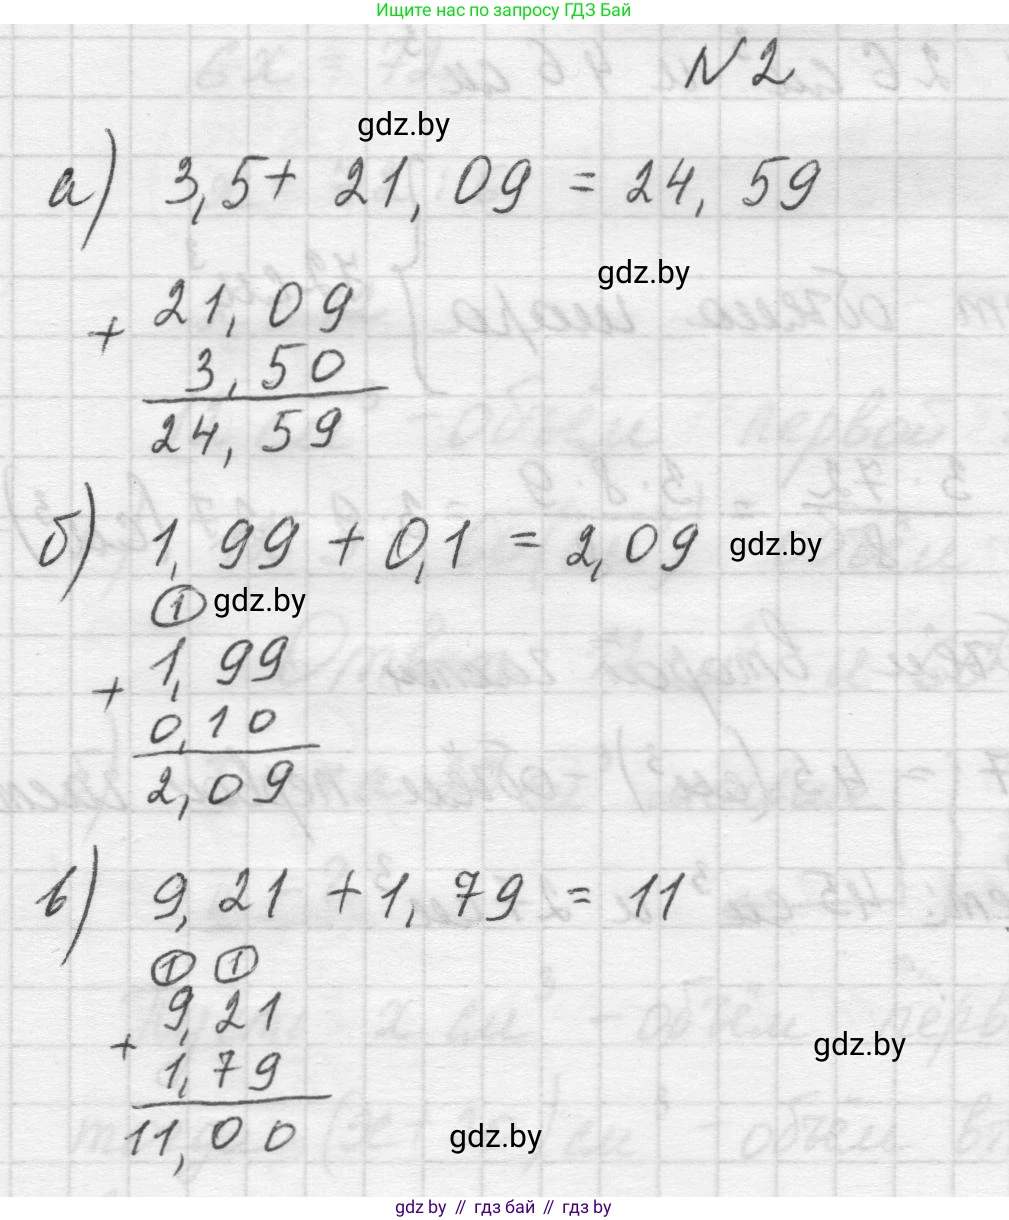 Ищите нас по запросу ГДЗ Бай
N2
gdz.by
а) 3,5+ 21,09 = 24,59
gdz.by
21,09
+
3,50
24,59
б) 1,99 + 0,1 = 2,09 gdz.by
1 gdz.by
1,99
+
0,10
2,09
в) 9,21 + 1,79 = 11
1 1
9,21
+ gdz.by
1,79
11,00 gdz.by
gdz by // гдз бай // гдз by